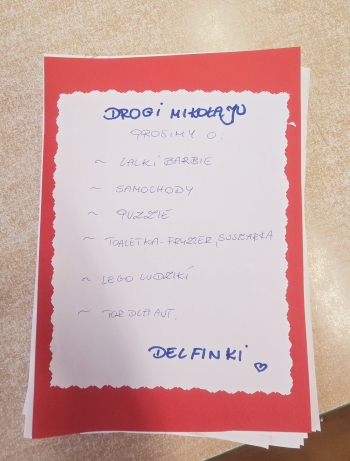 DROGI MIKOŁAJU
PROSIMY O:
~ LALKI BARBIE
~ SAMOCHODY
~ PUZZLE
~ TOALETKA-FRYZJER, SUSZARKA
~ LEGO LUDZIKI
~ TOR DLA AUT.
DELFINKI